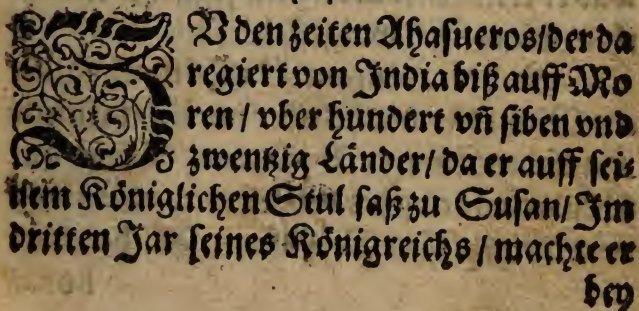 ZV den zeiten Ahasueros/der da
regiert von India biß auff Mo
ren / vber hundert vñ siben vnd
zwentzig Länder/ da er auff sei⸗
nem Königlichen Stul saß zu Susan/ Im
dritten Jar seines Königreichs / machte er
bey